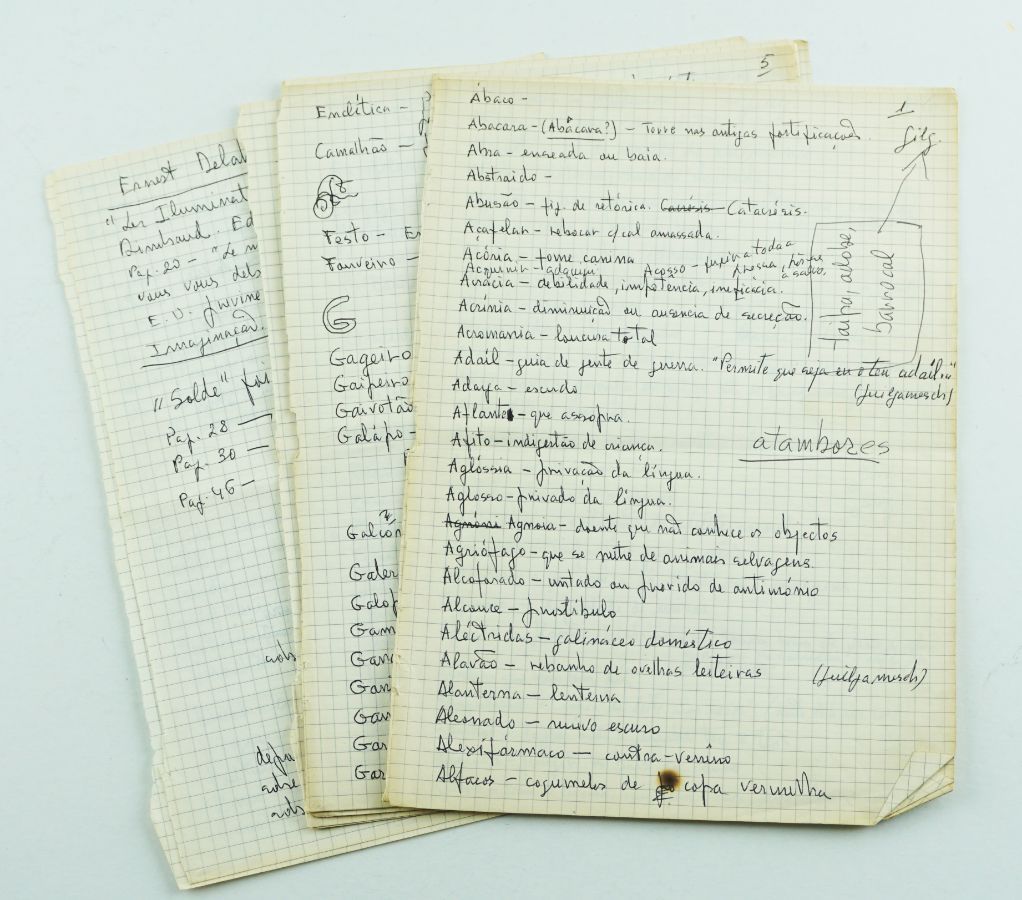 Ernest Delah
"Les Iluminat
Rimbaud. Ed
Pag. 20 - "Le m
vous vous dels
E. V.
Imaginação.
"Solde"
Pag. 28 -
Pag. 30 -
Pag. 46 -
5
Enclítica -
Camalhão -
Festo - E
Forveiro -
G
Gageiro
Gaipeiro
Gaivotão
Galápo -
Galcon
Galer
Galop
Gam
Gan
Gan
Gan
Gar
Gar
1
Gilg.
Ábaco -
Abacara - (Abácara?) - Torre nas antigas fortificações.
Abra - enseada ou baía.
Abstraido -
Abusão - fig. de retórica. Catacrésis.
Açafelar - rebocar c/cal amassada.
Acória - fome canina
Acquirir - adquirir
Acosso -
Acrácia - debilidade, impotência, ineficácia.
Acrínia - diminuição ou ausencia de secreção.
Acromania - loucura total
taipa, adobe,
barrocal
Adail - guia de gente de guerra. "Permite que seja eu o teu adail..."
(Guilgamesch)
Adaga - escudo
Aflante - que assopra.
Afito - indigestão de criança.
atambores
Aglóssia - privação da língua.
Aglosso - privado da língua.
Agnosia - doente que não conhece os objectos
Agriófago - que se nutre de animais selvagens.
Alcoforado - untado ou provido de antimónio
Alcouce - prostíbulo
Aléctridas - galináceo doméstico
Alavão - rebanho de ovelhas leiteiras (Guilgamesch)
Alanterna - lanterna
Aleonado - ruivo escuro
Alexifármaco - contra-veneno
Alfacos - cogumelos de copa vermelha